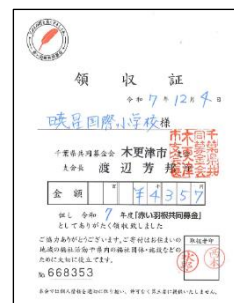 領収証
令和7年12月4日
暁星国際小学校様
千葉県共同募金会 木更津市支会
支会長 渡辺芳邦
金額 ¥4357
但し 令和7年度「赤い羽根共同募金」
としてありがたく領収致しました
ご協力ありがとうございます。ご寄付はお住まいの
地域の福祉活動や県内の福祉団体・施設などの
ために大切に役立てます。
取扱者印
№668353